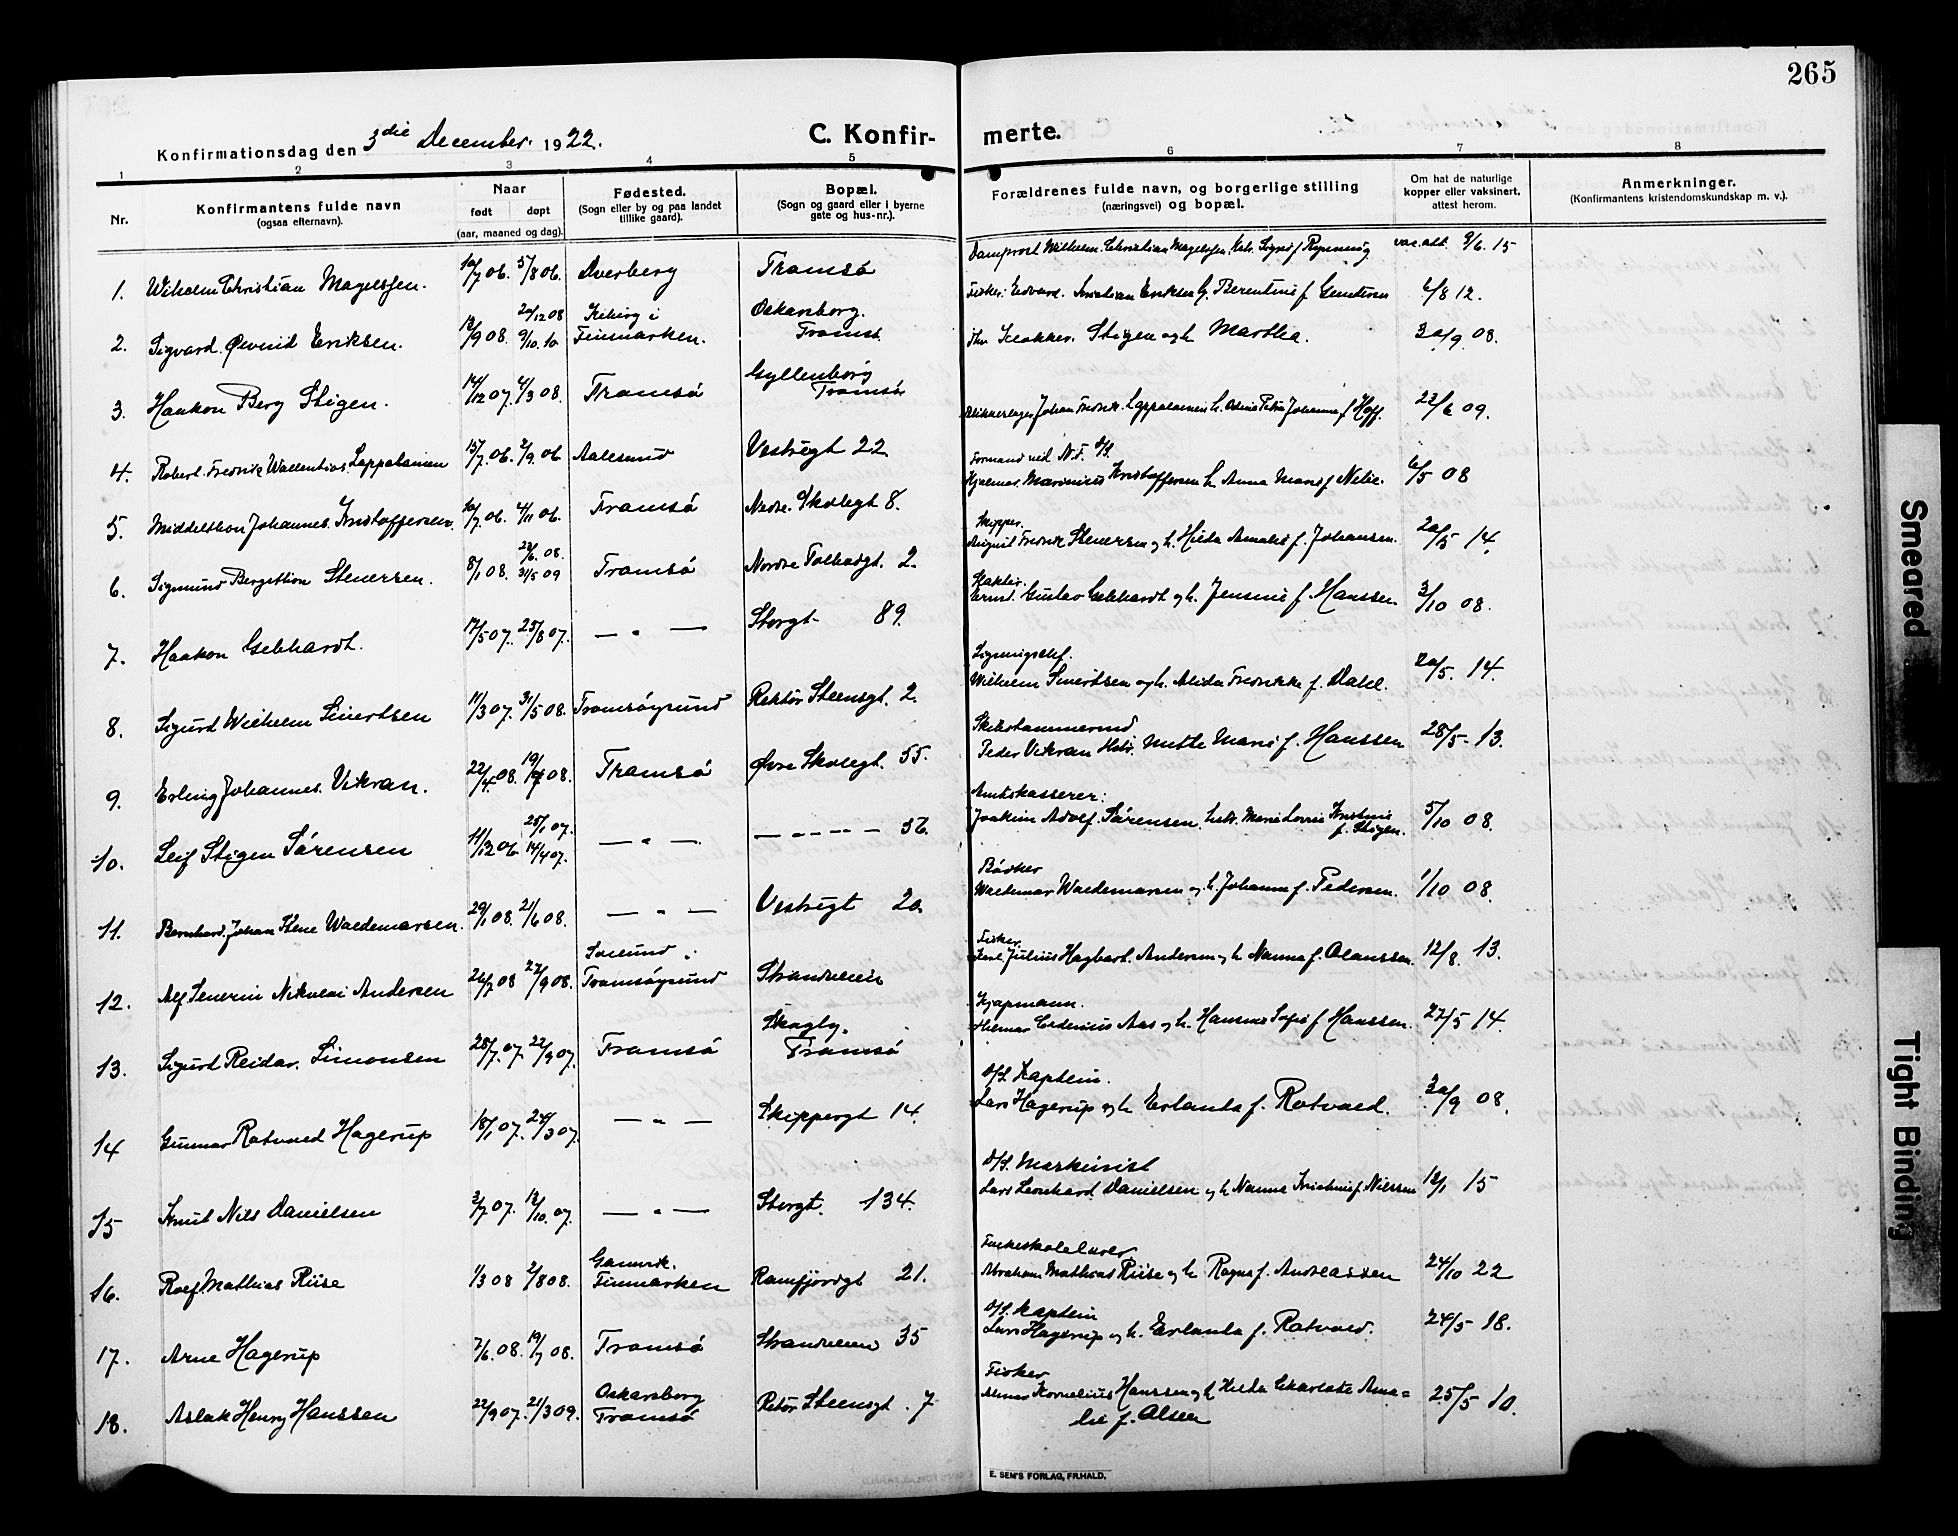 265
Konfirmationsdag den 3die December 1922.
C. Konfir- merte.
1 2 3 4 5 6 7 8
Nr.
Konfirmantens fulde navn
(ogsaa efternavn).
Naar
født døpt
(aar, maaned og dag).
Fødested.
(Sogn eller by og paa landet
tillike gaard).
Bopæl.
(Sogn og gaard eller i byerne
gate og hus-nr.).
Forældrenes fulde navn, og borgerlige stilling
(næringsvei) og bopæl.
Om hat de naturlige
kopper eller vaksinert,
attest herom.
Anmerkninger.
(Konfirmantens kristendomskundskap m. v.).
1. Wilhelm Christian Magelssen. 10/7 06. 5/8 06. Dverberg Tromsø Domprost Wilhelm Christian Magelssen vac. att. 9/6 15
2. Sigvard Øivind Eriksen. 12/9 08 20/12 08 9/10 10 Kiberg i Finmarken. Oskarsborg. Tromsø Fisker Edvard Kristian Eriksen 6/8 12.
3. Haakon Berg Stigen. 14/12 07. 4/3 08. Tromsø Gyllenborg Tromsø Klokker Stigen og h. Martha. 30/9 08.
4. Robert Fredrik Lappalainen 15/7 06. 2/9 06 Aalesund Vestregt 22 Blikkenslager Johan Fredrik Lappalainen h. Petra Johanna f. Hoff. 22/6 09.
5. Middelthon Johannes Kristoffersen. 10/7 06. 4/11 06. Tromsø Nedre Skolegt 8. Formand ved N.F. D/S. Hjalmar Marinius Kristoffersen h. Anna Marie f. Nilsen 6/5 08
6. Sigmund Bergithon Stenersen. 8/1 08. 22/6 08. 31/5 09 Tromsø Nordre Tolbodgt. 2. Skipper. August Fredrik Stenersen og h. Hilda Amalie f. Johansen. 20/5 14.
7. Haakon Gebhardt. 17/5 07. 25/8 07. — " — Storgt 89. Slakter. Ernst Gustav Gebhardt og h. Jensine f. Hanssen 3/10 08.
8. Sigurd Wilhelm Sivertsen 11/3 07. 31/5 08. Tromsøysund Rektor Steensgt. 2. Ligningschef. Wilhelm Sivertsen og h. Alida Fredrikke f. Dahl. 20/5. 14.
9. Erling Johannes Vikran. 22/4 08. 19/7 08. Tromsø Øvre Skolegt. 55. Skibstømmermd Peder Vikran Mette Marie f. Hanssen 28/5 13.
10. Leif Stigen Sørensen 11/12 06 25/1 07. 14/4 07. — " — — " — — 56. Amtskasserer: Joakim Adolf Sørensen, Marie Lovise Kristine f. Stigen. 5/10 08.
11. Bernhard Johan Waldemarsen. 29/1 08. 21/6 08. — " — Vestregt 20. Bødker Waldemar Waldemarsen og h. Johanna f. Pedersen. 1/10 08.
12. Alf Severin Nikolai Andersen 26/7 08 27/9 08. Tromsøysund Strandveien Fisker Karl Julius Hagbart Andersen og h. Nanna f. Olaussen. 12/8. 13.
13. Sigurd Reidar Simonsen 28/7. 07. 22/9 07. Tromsø Skogly. Tromsø Kjøpmann. Hilmar Aas og h. Hansine Sofie f. Hanssen. 27/5 14.
14 Gunnar Rotvold Hagerup 18/1 07. 24/3 07. — " — Skippergt 14. D/S. Kaptein. Lars Hagerup og h. Erlanda f. Rotvold. 30/9 08.
15 Knut Nils Danielsen 3/7 07. 13/10. 07. — " — Storgt. 134. D/S. Maskinist Lars Leonhard Danielsen og h. Nanna Kristine f. Nilssen 12/1 15
16. Rolf Mathias Riise 1/3 08 2/8 08. Gamvik. Finmarken Ramfjordgt 21. Folkeskolelærer Abraham Mathias Riise og h. Ragna f. Andreassen 24/10 22
17. Arne Hagerup 7/6. 08. 19/7 08. Tromsø Strandveien 35 D/S. Kaptein Lars Hagerup og h. Erlanda f. Rotvold. 24/5 18.
18. Aslak Henry Hanssen 22/9 07. 21/3 09. Oskarsborg Tromsø Rektor Steensgt. 7 Fisker Kornelius Hanssen og h. Hilda Charlotte Ama= lie f. Olsen 25/5 10.
E. SEM'S FORLAG, FR.HALD.
Smeared
Tight Binding